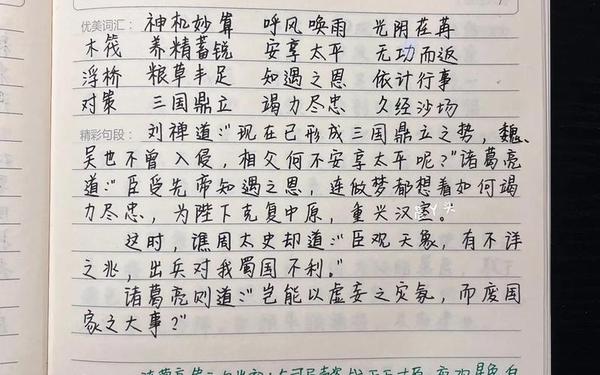 优美词汇: 神机妙算 呼风唤雨 光阴荏苒
木筏 养精蓄锐 安享太平 无功而返
浮桥 粮草丰足 知遇之恩 依计行事
对策 三国鼎立 竭力尽忠 久经沙场
精彩句段: 刘禅道:“现在已形成三国鼎立之势,魏、
吴也不曾入侵,相父何不安享太平呢?”诸葛亮
道:“臣受先帝知遇之恩,连做梦都想着如何竭
力尽忠,为陛下克复中原,重兴汉室。
这时,谯周太史却道:“臣观天象,有不详
之兆,出兵对我蜀国不利。”
诸葛亮则道:“岂能以虚妄之灾氛,而废国
家之大事?”